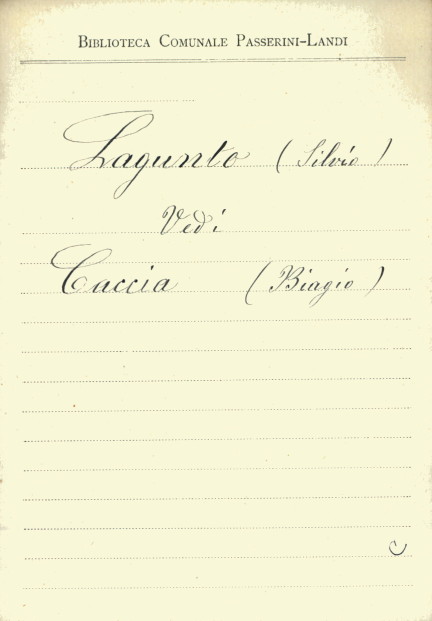 BIBLIOTECA COMUNALE PASSERINI-LANDI
Lagunto (Silvio)
Vedi
Caccia (Biagio)